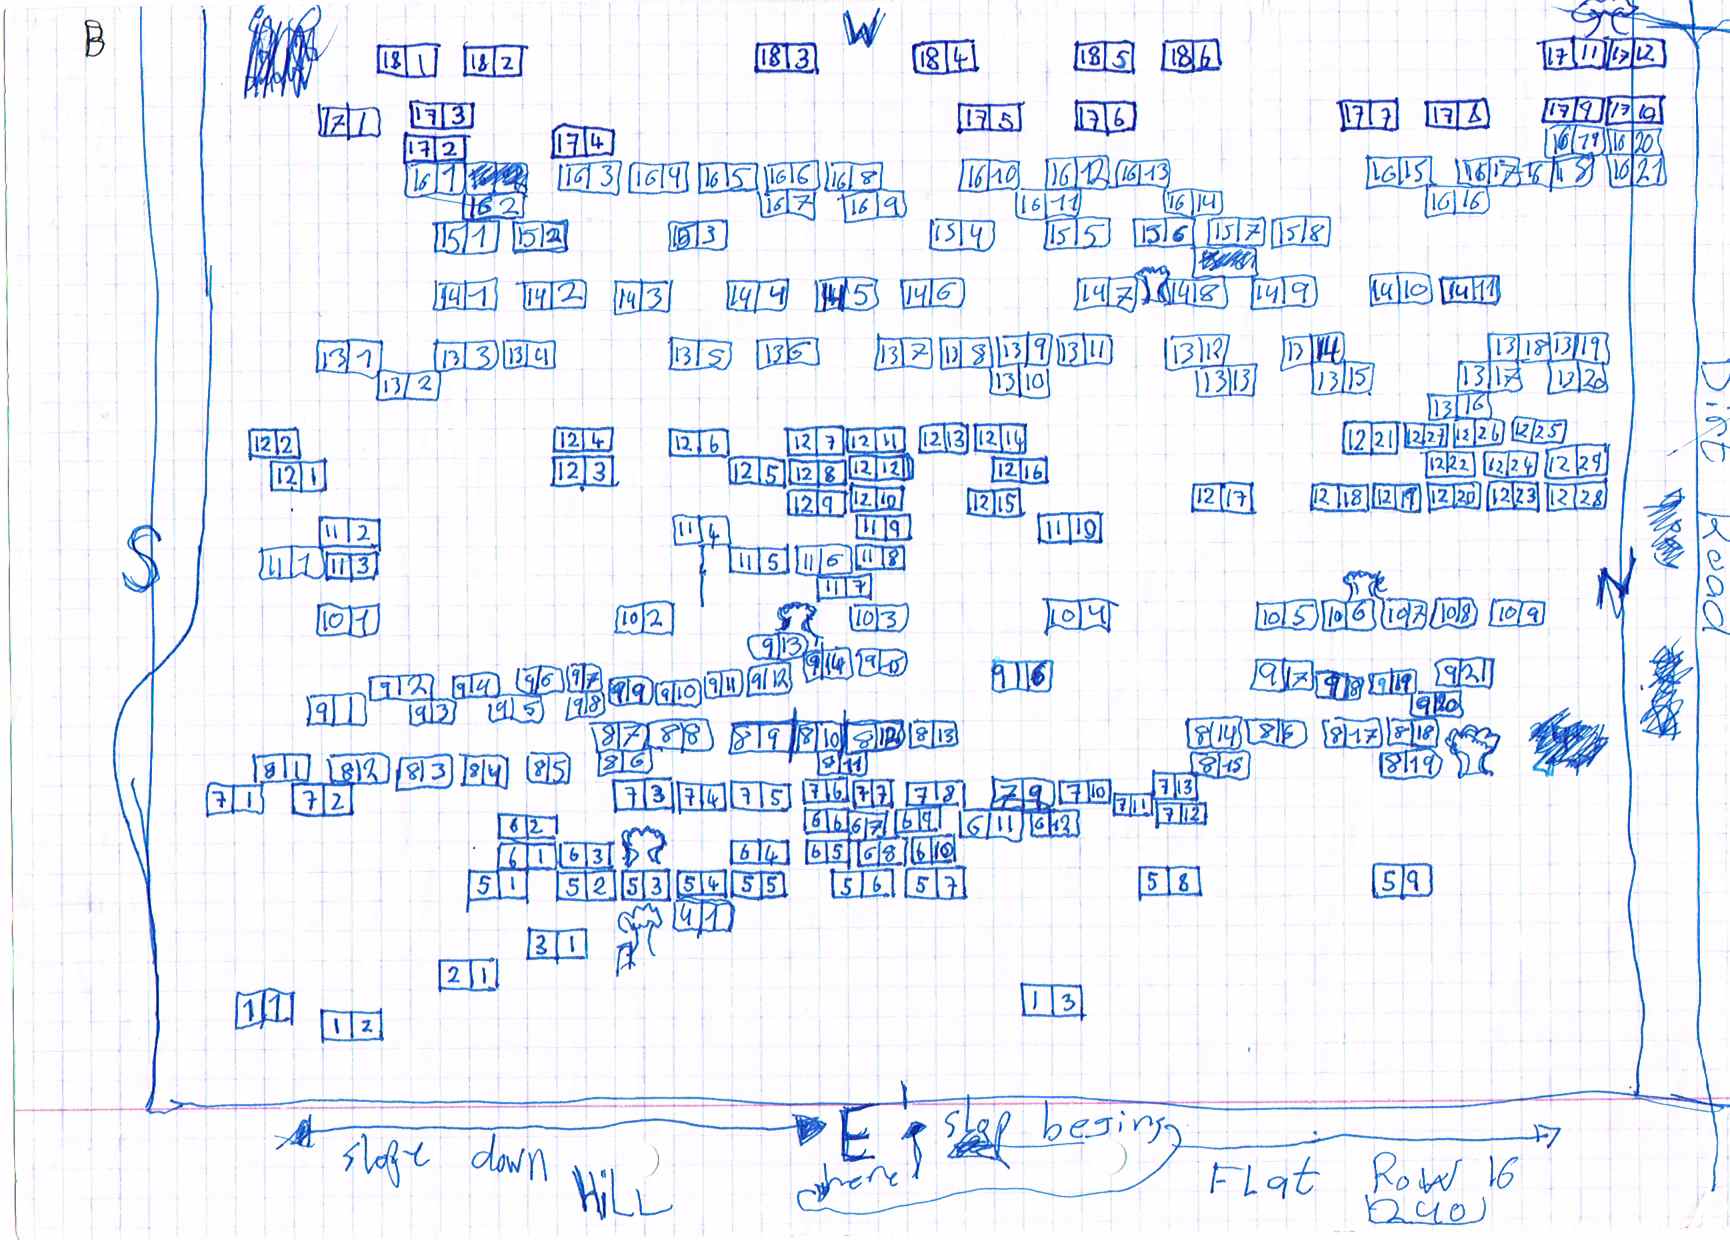 B
W
18 1 18 2 18 3 18 4 18 5 18 6 17 11 17 12
17 1 17 3 17 5 17 6 17 7 17 8 17 9 17 10
17 2 17 4 16 19 16 20
16 1 16 3 16 4 16 5 16 6 16 8 16 10 16 12 16 13 16 15 16 17 16 18 16 21
16 2 16 7 16 9 16 11 16 14 16 16
15 1 15 2 15 3 15 4 15 5 15 6 15 7 15 8
14 1 14 2 14 3 14 4 14 5 14 6 14 7 14 8 14 9 14 10 14 11
13 1 13 3 13 4 13 5 13 6 13 7 13 8 13 9 13 11 13 12 13 14 13 18 13 19
13 2 13 10 13 13 13 15 13 17 13 20
13 16
12 2 12 4 12 6 12 7 12 11 12 13 12 14 12 21 12 27 12 26 12 25
12 1 12 3 12 5 12 8 12 12 12 16 12 22 12 24 12 29
12 9 12 10 12 15 12 17 12 18 12 19 12 20 12 23 12 28
11 2 11 4 11 9 11 10
11 1 11 3 11 5 11 6 11 8
11 7
S
N
Dirt Road
10 1 10 2 10 3 10 4 10 5 10 6 10 7 10 8 10 9
9 13
9 14 9 15
9 2 9 4 9 6 9 7 9 9 9 10 9 11 9 12 9 16 9 17 9 18 9 19 9 21
9 1 9 3 9 5 9 8 9 20
8 7 8 8 8 9 8 10 8 12 8 13 8 14 8 16 8 17 8 18
8 1 8 2 8 3 8 4 8 5 8 6 8 11 8 15 8 19
7 1 7 2 7 3 7 4 7 5 7 6 7 7 7 8 7 9 7 10 7 11 7 13
7 12
6 2 6 6 6 7 6 9 6 11 6 12
6 1 6 3 6 4 6 5 6 8 6 10
5 1 5 2 5 3 5 4 5 5 5 6 5 7 5 8 5 9
4 1
3 1
2 1
1 1 1 3
1 2
E
slop begins
here
slope down
HiLL
FLat Row 16
240